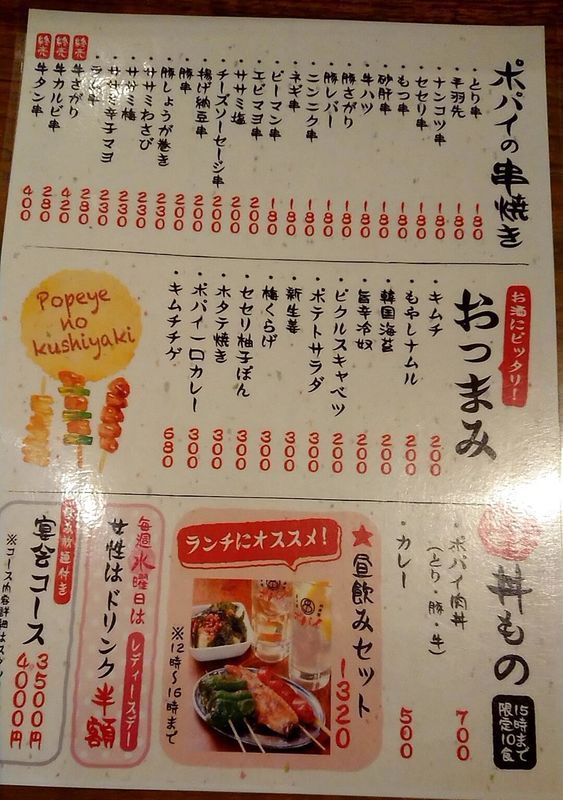 ポパイの串焼き
・とり串 180
・手羽先 180
・ナンコツ串 180
・セセリ串 180
・もつ串 180
・砂肝串 180
・牛ハツ 180
・豚さがり 180
・豚レバー 180
・ニンニク串 180
・ネギ串 180
・ピーマン串 180
・エビマヨ串 200
・ササミ塩 200
・チーズソーセージ串 200
・揚げ納豆串 200
・豚串 200
・豚しょうが巻き 230
・ササミわさび 230
・ササミ梅 230
・ササミ辛子マヨ 230
・ラム串 280
終売 牛さがり 420
終売 牛カルビ串 280
終売 牛タン串 400
お酒にピッタリ!
おつまみ
・キムチ 200
・もやしナムル 200
・韓国海苔 200
・旨辛冷奴 200
・ピクルスキャベツ 200
・ポテトサラダ 300
・新生姜 300
・梅くらげ 300
・セセリ柚子ぽん 300
・ホタテ焼き 300
・ポパイ一口カレー 300
・キムチチゲ 680
Popeye
no
kushiyaki
丼もの
15時まで
限定10食
・ポパイ肉丼
(とり・豚・牛) 700
・カレー 500
ランチにオススメ!
★昼飲みセット 1320
※12時〜16時まで
毎週水曜日は レディースデー
女性はドリンク半額
飲み放題付き
宴会コース 3500円
4000円
※コース内容詳細はスタ